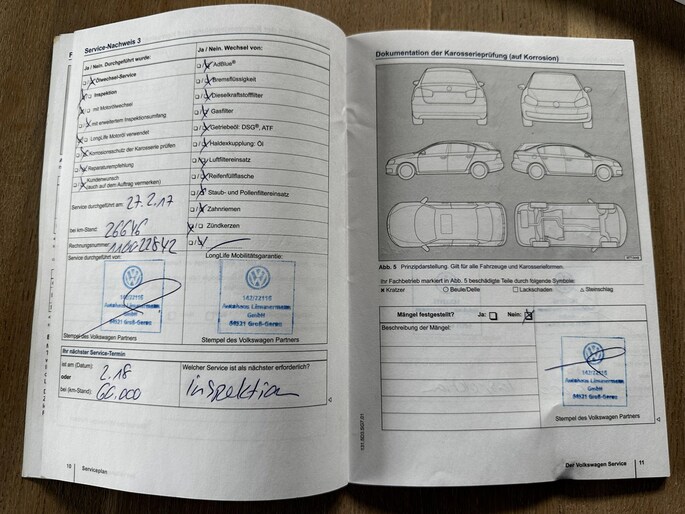 Service-Nachweis 3
Ja / Nein. Durchgeführt wurde:
Ölwechsel-Service
Inspektion
mit Motorölwechsel
mit erweitertem Inspektionsumfang
LongLife Motoröl verwendet
Korrosionsschutz der Karosserie prüfen
Reparaturempfehlung
Kundenwunsch
(auch auf dem Auftrag vermerken)
Service durchgeführt am: 27.2.17
bei km-Stand: 26646
Rechnungsnummer:
Service durchgeführt von:
142/22115
Autohaus Lömannermann
GmbH
64521 Groß-Gerau
Stempel des Volkswagen Partners
Ja / Nein. Wechsel von:
AdBlue®
Bremsflüssigkeit
Dieselkraftstofffilter
Gasfilter
Getriebeöl: DSG®, ATF
Haldexkupplung: Öl
Luftfiltereinsatz
Reifenfüllflasche
Staub- und Pollenfiltereinsatz
Zahnriemen
Zündkerzen
LongLife Mobilitätsgarantie:
GmbH
64521 Groß-Gerau
Stempel des Volkswagen Partners
Ihr nächster Service-Termin
ist am (Datum): 2.18
oder
bei (km-Stand): 60.000
Welcher Service ist als nächster erforderlich?
Inspektion
10 Serviceplan
Dokumentation der Karosserieprüfung (auf Korrosion)
Abb. 5 Prinzipdarstellung. Gilt für alle Fahrzeuge und Karosserieformen.
Ihr Fachbetrieb markiert in Abb. 5 beschädigte Teile durch folgende Symbole:
× Kratzer ○ Beule/Delle □ Lackschaden △ Steinschlag
Mängel festgestellt? Ja: Nein:
Beschreibung der Mängel:
GmbH
64521 Groß-Gerau
Stempel des Volkswagen Partners
Der Volkswagen Service 11